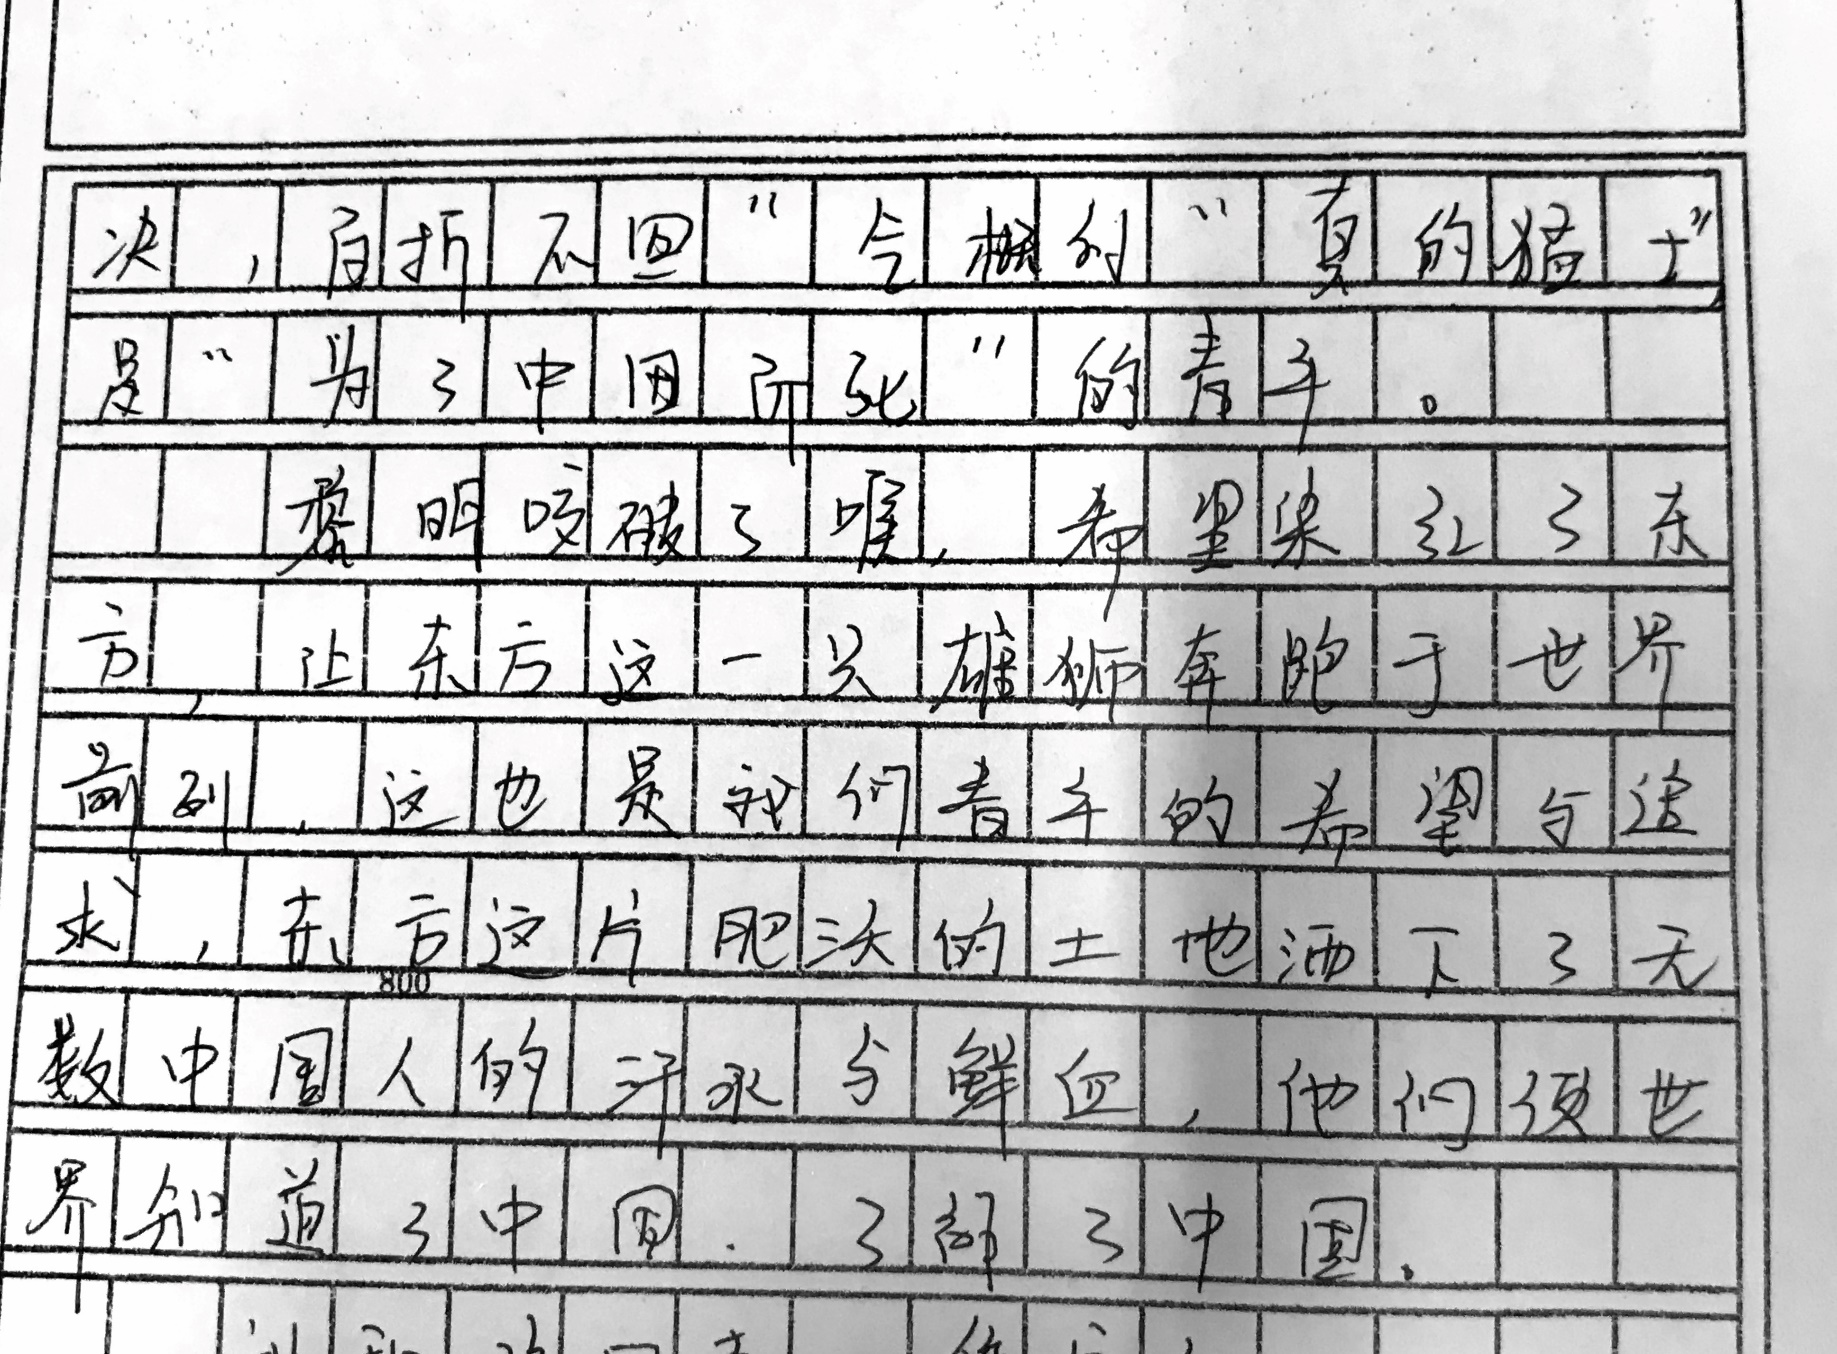 决，百折不回"气概的"真的猛士"，
是"为了中国而死"的青年。
黎明咬破了喉，希望染红了东
方，让东方这一只雄狮奔跑于世界
前列，这也是我们青年的希望与追
求，东方这片肥沃的土地洒下了无
800
数中国人的汗水与鲜血，他们使世
界知道了中国.了解了中国.